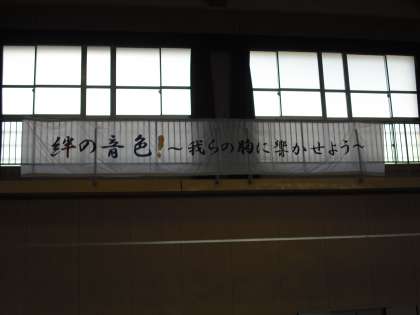 絆の音色!～我らの胸に響かせよう～